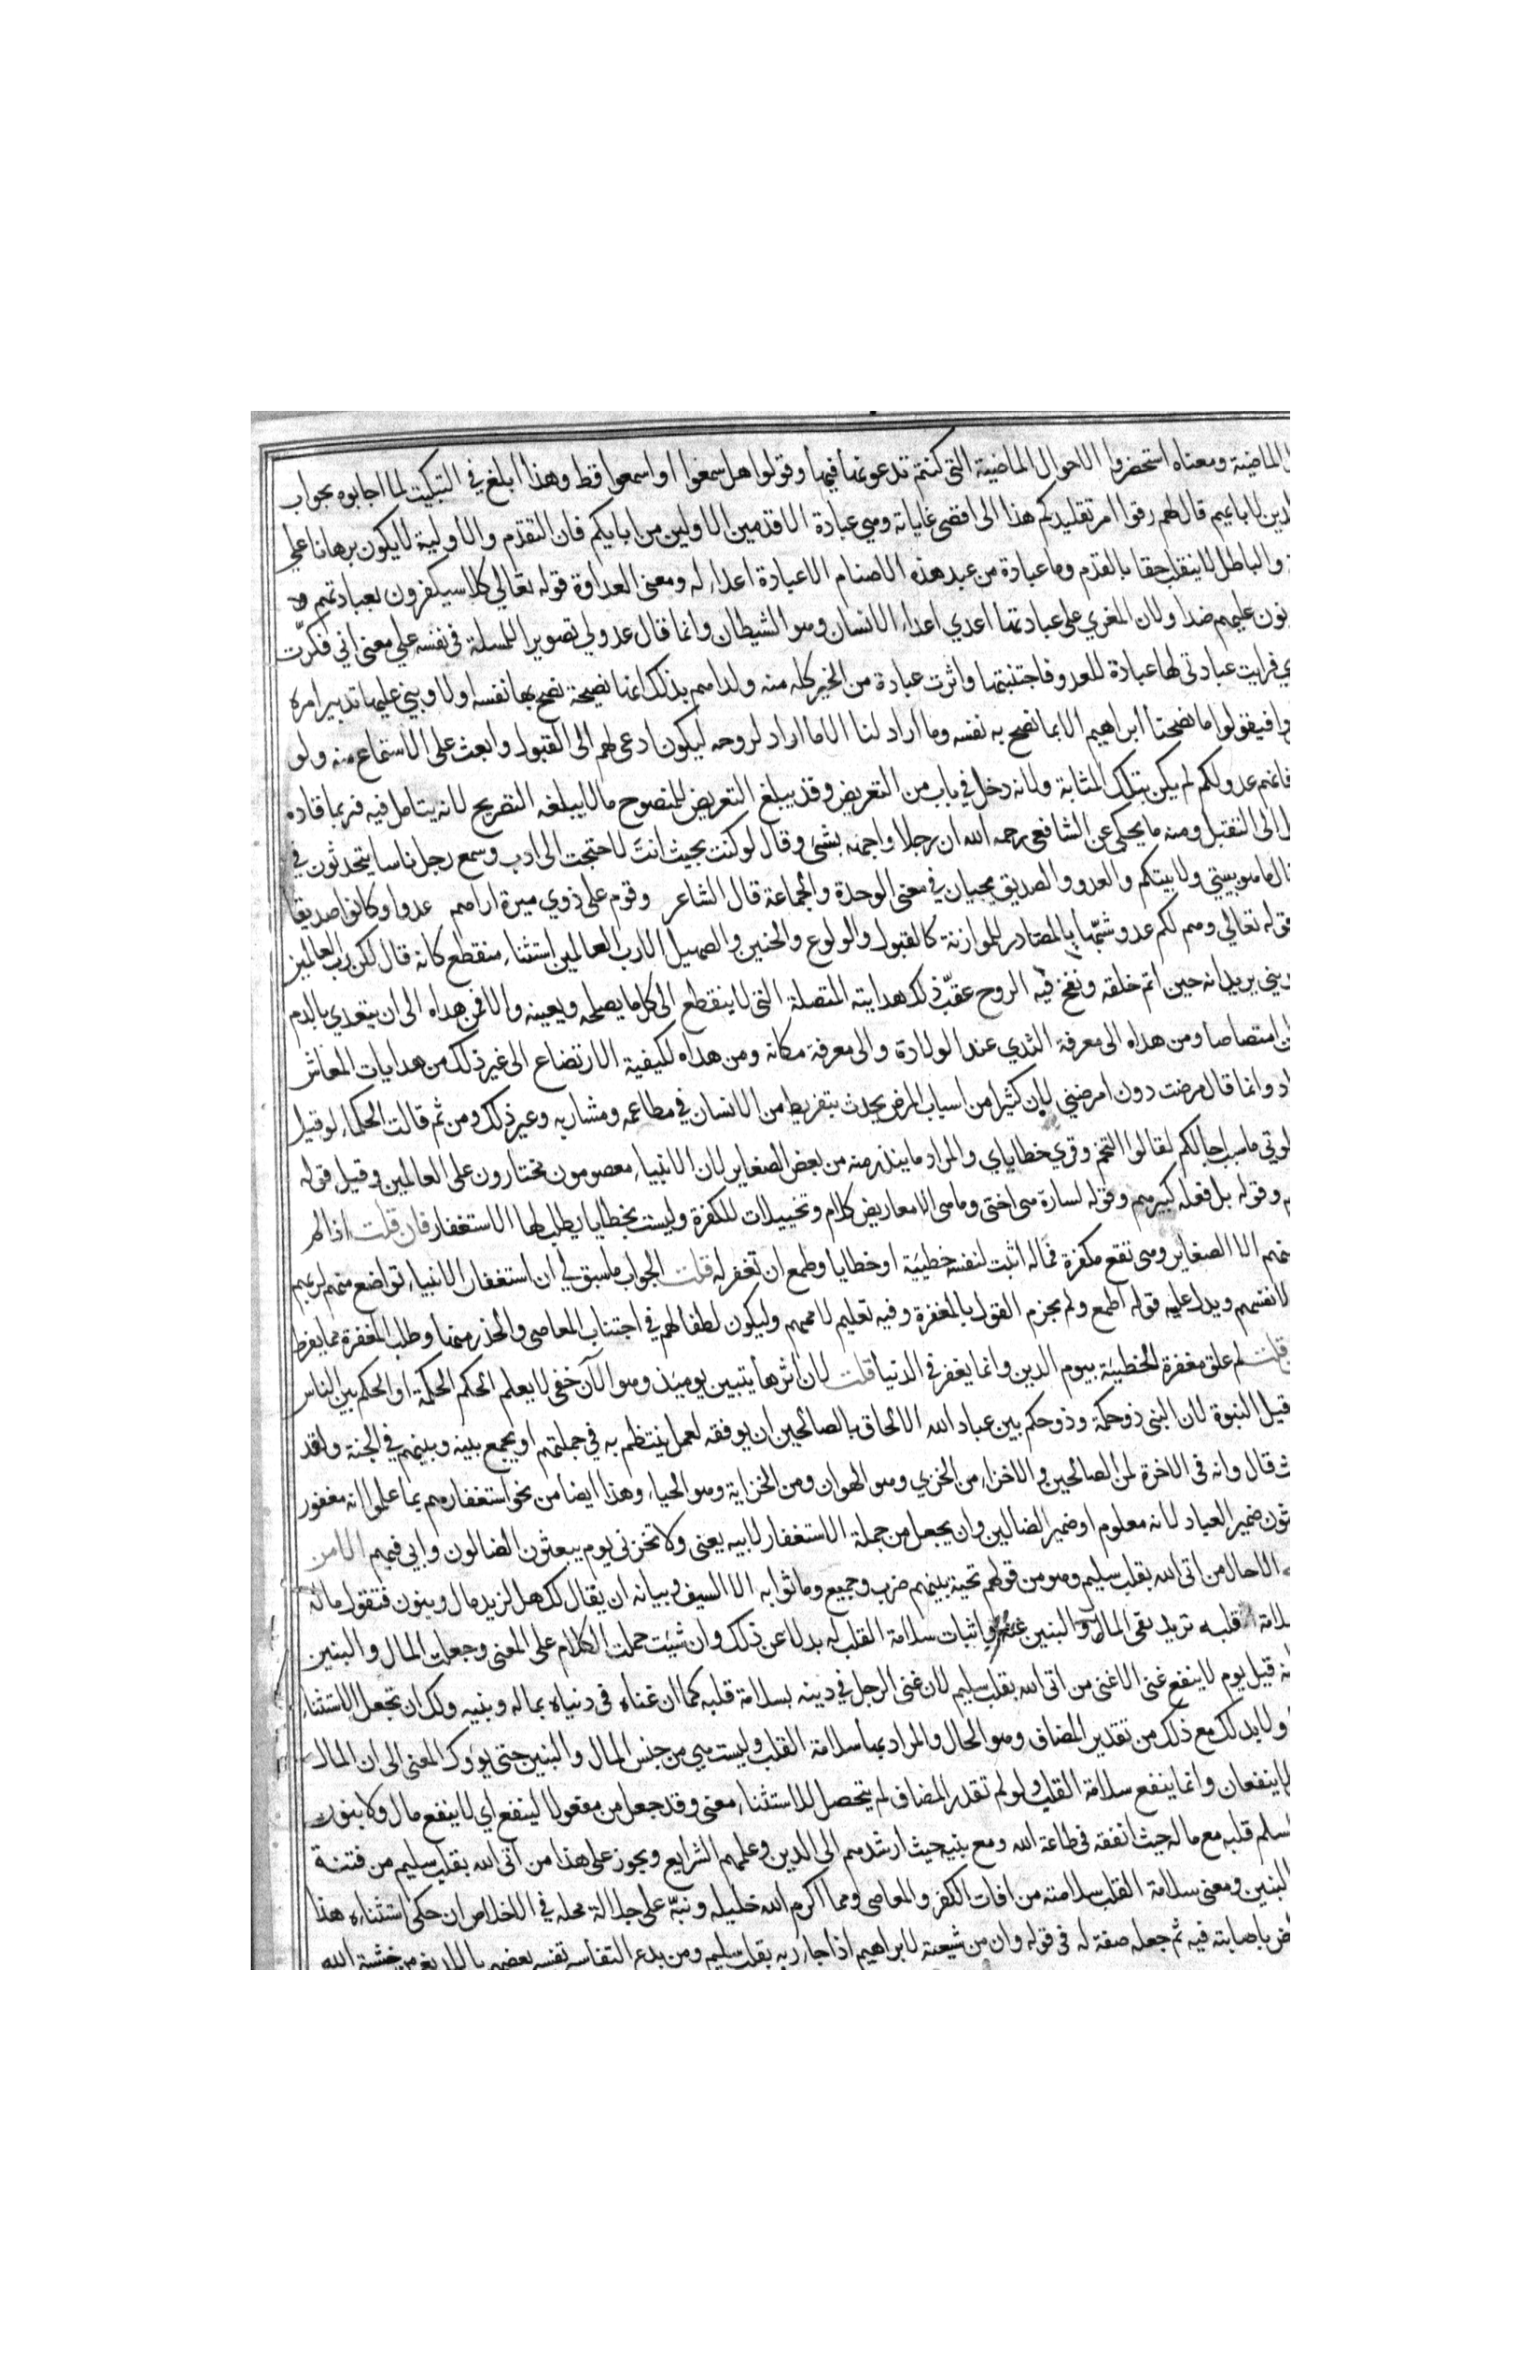 الماضية ومعناه استحضروا الاحوال الماضية التى كنتم تدعونها فيها وقولوا هل سمعوا او اسمعوا قط وهذا ابلغ في التبكيت لما اجابوه بجواب
لابايهم قال لهم رقوا امر تقليدكم هذا الى اقصى غاياته وهي عبادة الاقدمين الاولين من ابايكم فان التقدم والاولية لا يكون برهانا على
والباطل لا ينقلب حقا بالقدم وما عبادة من عبد هذه الاصنام الا عبادة اعداء له ومعنى العداوة قوله تعالي كلا سيكفرون بعبادتهم و
نون عليهم ضدا ولان المغري على عبادتها اعدي اعداء الانسان وهو الشيطان وانما قال عدو لي تصويرا للمسلة في نفسه علي معنى اني فكرت
ي فرايت عبادتى لها عبادة للعدو فاجتنبتها واثرت عبادة من الخير كله منه ولداهم بذلك انها نصيحة نصح بها نفسه اولا وبني عليها تدبير امره
وا فيقولوا ما نصحنا ابراهيم الا بما نصح به نفسه وما اراد لنا الا ما اراد لروحه ليكون ادعى لهم الى القبول وابعث على الاستماع منه ولو
فانهم عدو لكم لم يكن بتلك المثابة ولانه دخل في باب من التعريض وقد يبلغ التعريض للمنصوح ما لا يبلغه التصريح لانه يتامل فيه فربما قاده
الى التقبل ومنه ما يحكى عن الشافعى رحمه الله ان رجلا واجهه بشئ وقال لو كنت بحيث انت لاحتجت الى ادب وسمع رجل ناسا يتحدثون في
ال ما هو بيتي ولا بيتكم والعدو والصديق يجيان في معنى الوحدة والجماعة قال الشاعر وقوم على ذوي ميرة اراهم عدوا وكانوا صديقا
قوله تعالي وهم لكم عدو شبها بالمصادر للموازنة كالقبول والولوع والحنين والصهيل الا رب العالمين استثناء منقطع كانه قال لكن رب العالمين
يريد انه حين اتم خلقه ونفخ فيه الروح عقب ذلك هدايته المتصلة التى لا ينقطع الى كل ما يصلحه ويعينه والا فمن هداه الى ان يتغدي بالدم
ن امتصاصا ومن هداه الى معرفة الثدي عند الولادة والى معرفة مكانه ومن هداه لكيفية الارتضاع الى غير ذلك من هدايات المعاش
اد وانما قال مرضت دون امرضني لان كثيرا من اسباب المرض يحدث بتفريط من الانسان في مطاعمه ومشاربه وغير ذلك ومن ثم قالت الحكماء لو قيل
ما سبب اجالكم لقالوا التخم وقري خطاياي والمراد ما يندر منه من بعض الصغاير لان الانبياء معصومون مختارون على العالمين وقيل قوله
وقوله بل فعله كبيرهم وقوله لسارة هى اختى وما هى الا معاريض كلام وتخييلات للكفرة وليست بخطايا يطلب لها الاستغفار فان قلت اذا لم
منهم الا الصغاير وهى تقع مكفرة فماله اثبت لنفسه خطيئة او خطايا وطمع ان تغفر له قلت الجواب ما سبق لي ان استغفار الانبياء تواضع منهم لربهم
لانفسهم ويدل عليه قوله اطمع ولم يجزم القول بالمغفرة وفيه تعليم لاممهم وليكون لطفا لهم في اجتناب المعاصى والحذر منها وطلب المغفرة مما يفرط
قلت لم علق مغفرة الخطيئة بيوم الدين وانما يغفر في الدنيا قلت لان اثرها يتبين يوميذ وهو الآن خفى لا يعلم الحكم الحكمة او الحكم بين الناس
قيل النبوة لان النبى ذو حكمة وذو حكم بين عباد الله الالحاق بالصالحين ان يوفقه لعمل ينتظم به في جملتهم او يجمع بينه وبينهم في الجنة ولقد
قال وانه فى الاخرة لمن الصالحين والاخزاء من الخزي وهو الهوان ومن الخزاية وهو الحياء وهذا ايضا من نحو استغفارهم بما علموا انه مغفور
ثون ضمير العباد لانه معلوم او ضمير الضالين وان يجعل من جملة الاستغفار لابيه يعنى ولا تخزنى يوم يبعثون الضالون وابي فيهم الا من
الا حال من اتى الله بقلب سليم وهو من قولهم تحية بينهم ضرب وجميع وما ثوابه الا السيف وبيانه ان يقال لك هل لزيد مال وبنون فتقول ماله
لامة قلبه تريد نفى المال والبنين عنه واثبات سلامة القلب له بدلا عن ذلك وان شيت حملت الكلام على المعنى وجعلت المال والبنين
نه قيل يوم لا ينفع غنى الا غنى من اتى الله بقلب سليم لان غنى الرجل في دينه بسلامة قلبه كما ان غناه فى دنياه بماله وبنيه ولك ان تجعل الاستثناء
ولا بد لك مع ذلك من تقدير المضاف وهو الحال والمراد بها سلامة القلب وليست هي من جنس المال والبنين حتى يؤول المعنى الى ان المال
لا ينفعان وانما ينفع سلامة القلب ولو لم تقدر المضاف لم يتحصل للاستثناء معنى وقد جعل من مفعولا لينفع اي لا ينفع مال ولا بنون
سلم قلبه مع ماله حيث انفقه فى طاعة الله ومع بنيه حيث ارشدهم الى الدين وعلمهم الشرايع ويجوز على هذا من اتى الله بقلب سليم من فتنة
البنين ومعنى سلامة القلب سلامته من افات الكفر والمعاصى ومما اكرم الله خليله ونبه على جلالة محله في الاخلاص ان حكى استثناءه هذا
باصابته فيه ثم جعله صفة له فى قوله وان من شيعته لابراهيم اذ جاء ربه بقلب سليم ومن بدع التفاسير تفسير بعضهم باللديغ من خشية الله